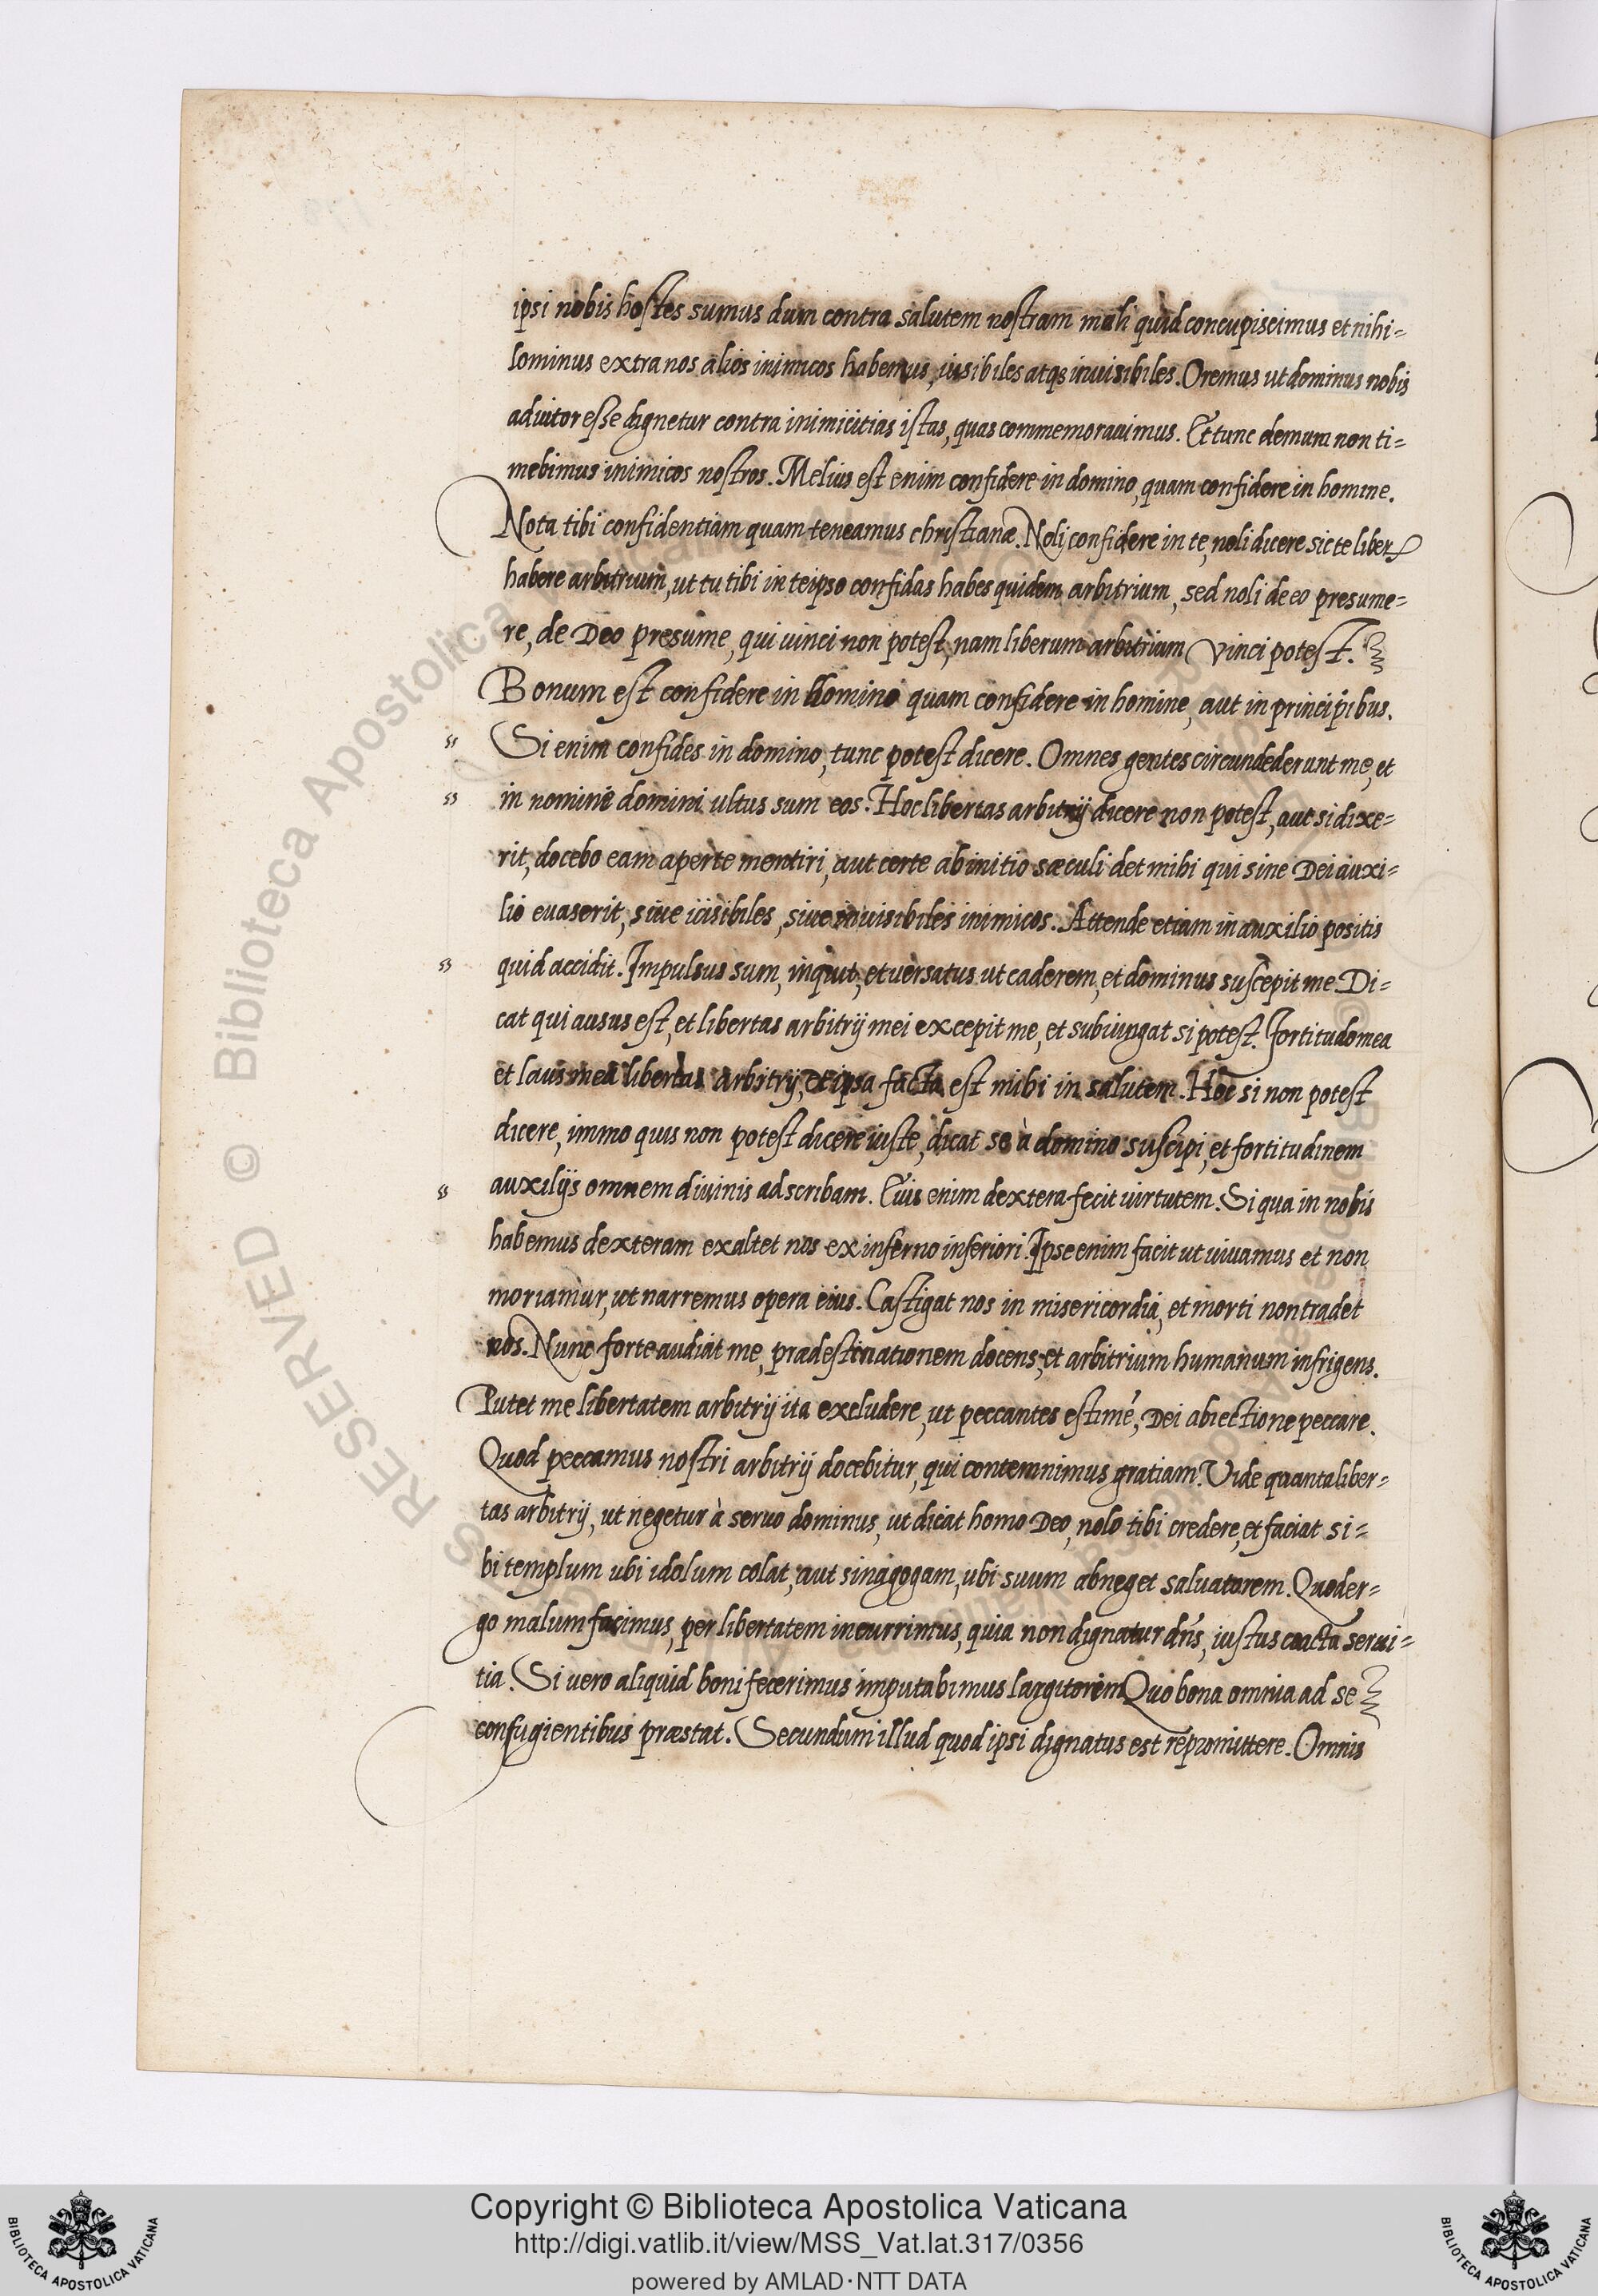 ipsi nobis hostes sumus dum contra salutem nostram mali quid concupiscimus et nihi=
lominus extra nos alios inimicos habemus, uisibiles atqs inuisibiles. Oremus ut dominus nobis
adiutor esse dignetur contra inimicitias istas, quas commemorauimus. Et tunc demum non ti=
mebimus inimicos nostros. Melius est enim confidere in domino, quam confidere in homine.
Nota tibi confidentiam quam teneamus christianæ. Nolj confidere in te, noli dicere sic te liber
habere arbitrium, ut tu tibi in teipso confidas habes quidem arbitrium, sed noli de eo presume=
re, de Deo presume, qui uinci non potest, nam liberum arbitrium vinci potest.
Bonum est confidere in domino quam confidere in homine, aut in principibus.
Si enim confides in domino, tunc potest dicere. Omnes gentes circundederunt me, et
in nomine domini ultus sum eos. Hoc libertas arbitrij dicere non potest, aut si dixe=
rit, docebo eam aperte mentiri, aut certe ab initio sæculi det mihi qui sine Dei auxi=
lio euaserit, siue uisibiles, siue inuisibiles inimicos. Attende etiam in auxilio positis
quid accidit. Impulsus sum, inquit, et uersatus ut caderem, et dominus suscepit me. Di=
cat qui ausus est, et libertas arbitrij mei excepit me, et subiungat si potest. Fortitudo mea
et laus mea libertas arbitrij, et ipsa facta est mihi in salutem. Hoc si non potest
dicere, immo quis non potest dicere iuste, dicat se à domino suscipi, et fortitudinem
auxilijs omnem diuinis adscribam. Euis enim dextera fecit uirtutem. Si qua in nobis
habemus dexteram exaltet nos ex inferno inferiori. Ipse enim facit ut uiuamus et non
moriamur, ut narremus opera eius. Castigat nos in misericordia, et morti non tradet
nos. Nunc forte audiat me, prædestinationem docens, et arbitrium humanum infrigens.
Putet me libertatem arbitrij ita excludere, ut peccantes estimé, Dei abiectione peccare.
Quod peccamus nostri arbitrij docebitur, qui contemnimus gratiam. Vide quanta liber=
tas arbitrij, ut negetur à seruo dominus, ut dicat homo Deo, nolo tibi credere, et faciat si=
bi templum ubi idolum colat, aut sinagogam, ubi suum abneget saluatorem. Quod er=
go malum facimus, per libertatem incurrimus, quia non dignatur dñs, iustus coacta serui=
tia. Si uero aliquid boni fecerimus imputabimus largitorem Quo bona omnia ad se
confugientibus præstat. Secundum illud quod ipsi dignatus est repromittere. Omnis
Copyright © Biblioteca Apostolica Vaticana
http://digi.vatlib.it/view/MSS_Vat.lat.317/0356
powered by AMLAD·NTT DATA
BIBLIOTECA APOSTOLICA VATICANA
BIBLIOTECA APOSTOLICA VATICANA